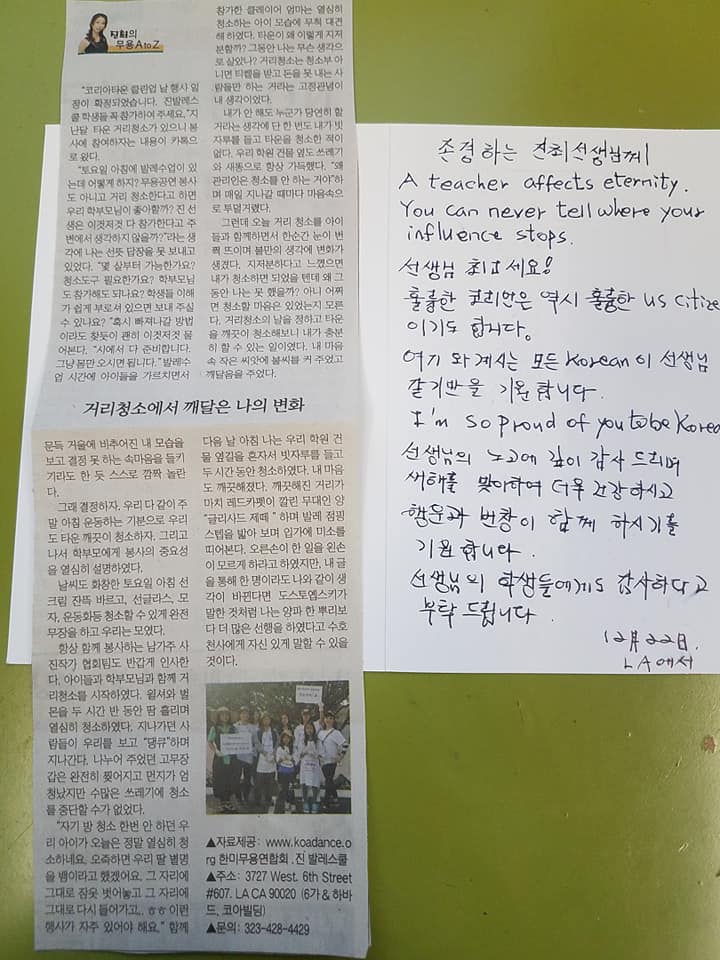 진최의
무용 A to Z
"코리아타운 클린업 날 행사 일
정이 확정되었습니다. 진발레스
쿨 학생들 꼭 참가하여 주세요."지
난달 타운 거리청소가 있으니 봉
사에 참여하자는 내용이 카톡으
로 왔다.
"토요일 아침에 발레수업이 있
는데 어떻게 하지? 무용공연 봉사
도 아니고 거리 청소한다고 하면
우리 학부모님이 좋아할까? 진 선
생은 이것저것 다 참가한다고 주
변에서 생각하지 않을까?"라는 생
각에 나는 선뜻 답장을 못 보내고
있었다. "몇 살부터 가능한가요?
청소도구 필요한가요? 학부모님
도 참가해도 되나요? 학생들 이해
가 쉽게 부로셔 있으면 보내 주실
수 있나요? "혹시 빠져나갈 방법
이라도 찾듯이 괜히 이것저것 물
어본다. "시에서 다 준비합니다.
그냥 몸만 오시면 됩니다." 발레수
업 시간에 아이들을 가르치면서
참가한 클레이어 엄마는 열심히
청소하는 아이 모습에 무척 대견
해 하였다. 타운이 왜 이렇게 지저
분할까? 그동안 나는 무슨 생각으
로 살았나? 거리청소는 청소부 아
니면 티켓을 받고 돈을 못 내는 사
람들만 하는 거라는 고정관념이
내 생각이었다.
내가 안 해도 누군가 당연히 할
거라는 생각에 단 한 번도 내가 빗
자루를 들고 타운을 청소한 적이
없다. 우리 학원 건물 옆도 쓰레기
와 새똥으로 항상 가득했다. "왜
관리인은 청소를 안 하는 거야"하
며 매일 지나갈 때마다 마음속으
로 투덜거렸다.
그런데 오늘 거리 청소를 아이
들과 함께하면서 한순간 눈이 번
쩍 뜨이며 불만의 생각에 변화가
생겼다. 지저분하다고 느꼈으면
내가 청소하면 되었을 텐데 왜 그
동안 나는 못 했을까? 아니 어쩌
면 청소할 마음은 있었는지 모른
다. 거리청소의 날을 정하고 타운
을 깨끗이 청소해보니 내가 충분
히 할 수 있는 일이였다. 내 마음
속 작은 씨앗에 불씨를 켜 주었고
깨달음을 주었다.
거리청소에서 깨달은 나의 변화
문득 거울에 비추어진 내 모습을
보고 결정 못 하는 속마음을 들키
기라도 한 듯 스스로 깜짝 놀란
다.
그래 결정하자. 우리 다 같이 주
말 아침 운동하는 기분으로 우리
도 타운 깨끗이 청소하자. 그리고
나서 학부모에게 봉사의 중요성
을 열심히 설명하였다.
날씨도 화창한 토요일 아침 선
크림 잔뜩 바르고, 선글라스, 모
자, 운동화등 청소할 수 있게 완전
무장을 하고 우리는 모였다.
항상 함께 봉사하는 남가주 사
진작가 협회팀도 반갑게 인사한
다. 아이들과 학부모님과 함께 거
리청소를 시작하였다. 윌셔와 벌
몬을 두 시간 반 동안 땀 흘리며
열심히 청소하였다. 지나가던 사
람들이 우리를 보고 "땡큐"하며
지나간다. 나누어 주었던 고무장
갑은 완전히 찢어지고 먼지가 엄
청났지만 수많은 쓰레기에 청소
를 중단할 수가 없었다.
"자기 방 청소 한번 안 하던 우
리 아이가 오늘은 정말 열심히 청
소하네요. 오죽하면 우리 딸 별명
을 뱀이라고 했겠어요. 그 자리에
그대로 잠옷 벗어놓고 그 자리에
그대로 다시 들어가고.. ㅎㅎ 이런
행사가 자주 있어야 해요." 함께
다음 날 아침 나는 우리 학원 건
물 옆길을 혼자서 빗자루를 들고
두 시간 동안 청소하였다. 내 마음
도 깨끗해졌다. 깨끗해진 거리가
마치 레드카펫이 깔린 무대인 양
"글리사드 제떼 " 하며 발레 점핑
스텝을 밟아 보며 입가에 미소를
띠어본다. 오른손이 한 일을 왼손
이 모르게 하라고 하였지만, 내 글
을 통해 한 명이라도 나와 같이 생
각이 바뀐다면 도스토옙스키가
말한 것처럼 나는 양파 한 뿌리보
다 더 많은 선행을 하였다고 수호
천사에게 자신 있게 말할 수 있을
것이다.
▲자료제공: www.koadance.o
rg 한미무용연합회. 진 발레스쿨
▲주소: 3727 West. 6th Street
#607. LA CA 90020 (6가 & 하바
드, 코아빌딩)
▲문의: 323-428-4429
존경하는 진최선생님께!
A teacher affects eternity.
You can never tell where your
influence stops.
선생님 최고세요!
훌륭한 코리안은 역시 훌륭한 US Citize
이기도 합니다.
여기 와 계시는 모든 Korean이 선생님
같기만을 기원합니다.
I'm so proud of you to be Korea
선생님의 노고에 깊이 감사 드리며
새해를 맞이하여 더욱 건강하시고
행운과 번창이 함께 하시기를
기원합니다.
선생님의 학생들에게도 감사하다고
부탁 드립니다.
12月 22日.
LA에서